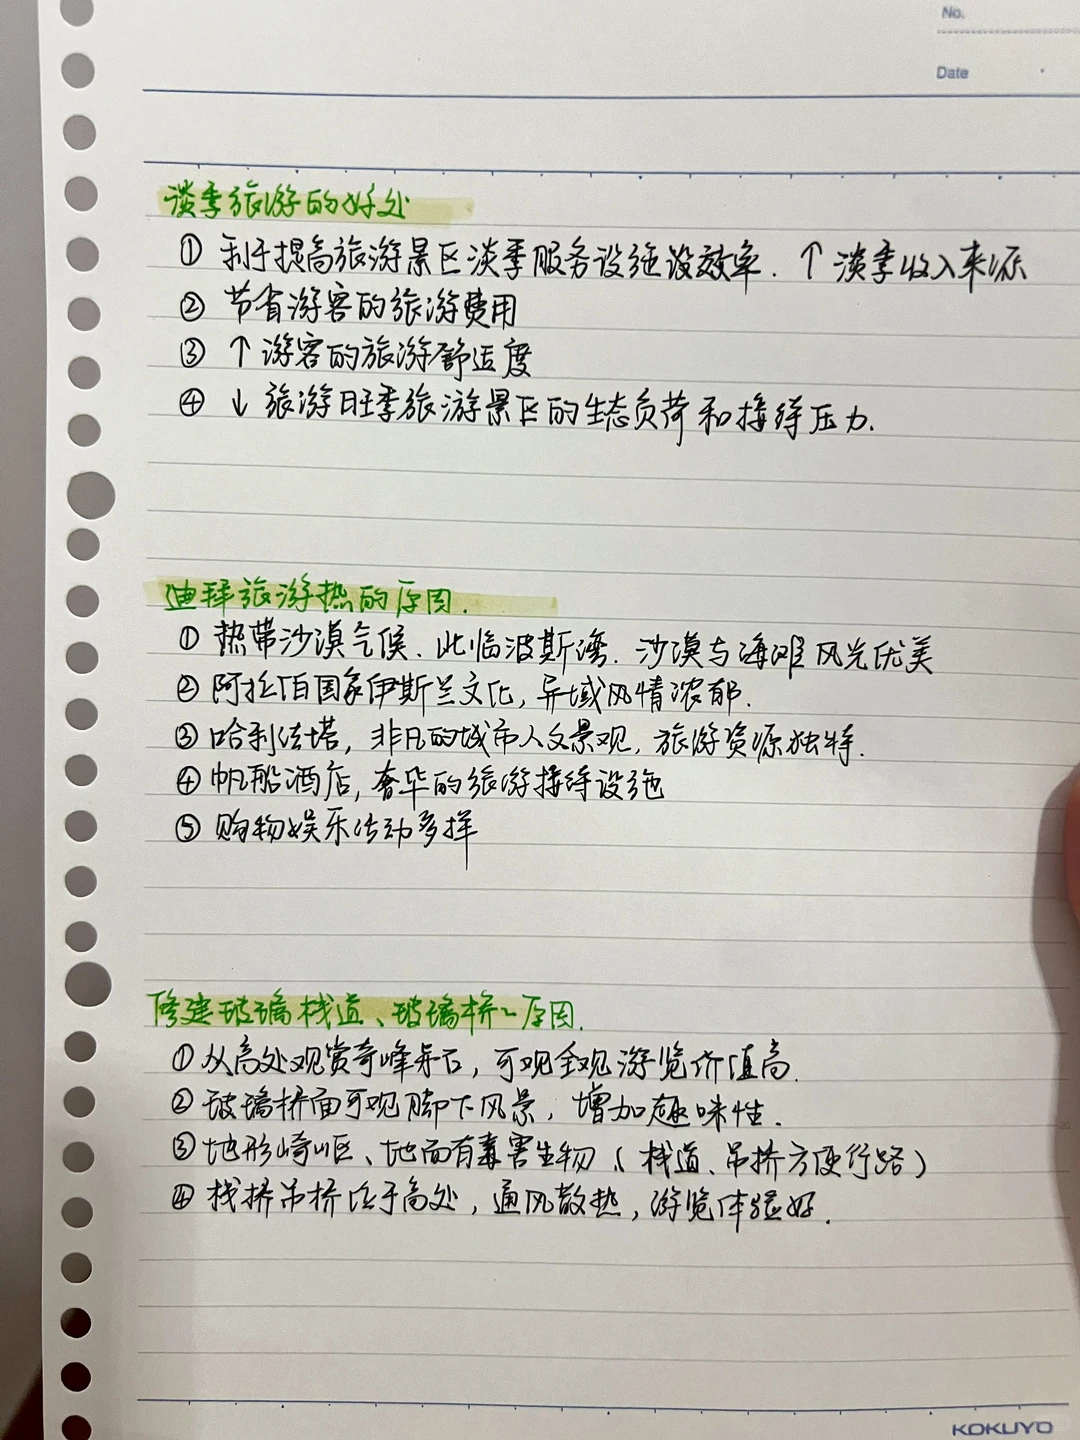 No.
Date
淡季旅游的好处
① 利于提高旅游景区淡季服务设施设效率. ↑ 淡季收入来源
② 节省游客的旅游费用
③ ↑ 游客的旅游舒适度
④ ↓ 旅游旺季旅游景区的生态负荷和接待压力.
迪拜旅游热的原因.
① 热带沙漠气候. 北临波斯湾. 沙漠与海滩风光优美
② 阿拉伯国家伊斯兰文化, 异域风情浓郁.
③ 哈利法塔, 非凡的城市人文景观, 旅游资源独特.
④ 帆船酒店, 奢华的旅游接待设施
⑤ 购物娱乐活动多样
修建玻璃栈道、玻璃桥~原因.
① 从高处观赏奇峰异石, 可观全观游览价值高.
② 玻璃桥面可观脚下风景, 增加趣味性.
③ 地形崎岖、地面有毒害生物 (栈道、吊桥方便行路)
④ 栈桥吊桥位于高处, 通风散热, 游览体验好.
KOKUYO